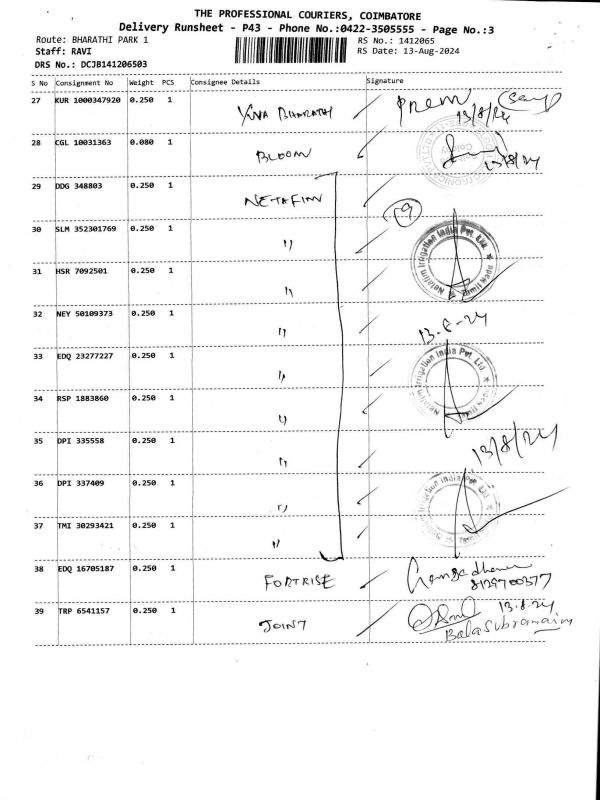 THE PROFESSIONAL COURIERS, COIMBATORE
Delivery Runsheet - P43 - Phone No.:0422-3505555 - Page No.:3
Route: BHARATHI PARK 1 RS No.: 1412065
Staff: RAVI RS Date: 13-Aug-2024
DRS No.: DCJB141206503
S No Consignment No Weight PCS Consignee Details Signature
27 KUR 1000347920 0.250 1 YUVA BHARATHI Prem 13/8/24
28 CGL 10031363 0.080 1 BLOOM 13/8/24
29 DDG 348803 0.250 1 NETAFIM
30 SLM 352301769 0.250 1 " Netafim Irrigation India Pvt. Ltd.
31 HSR 7092501 0.250 1 "
32 NEY 50109373 0.250 1 " 13-8-24
33 EDQ 23277227 0.250 1 " Netafim Irrigation India Pvt. Ltd.
34 RSP 1883860 0.250 1 "
35 DPI 335558 0.250 1 " 13/8/24
36 DPI 337409 0.250 1 "
37 TMI 30293421 0.250 1 "
38 EDQ 16705187 0.250 1 FORTRISE
39 TRP 6541157 0.250 1 JOINT 13.8.24